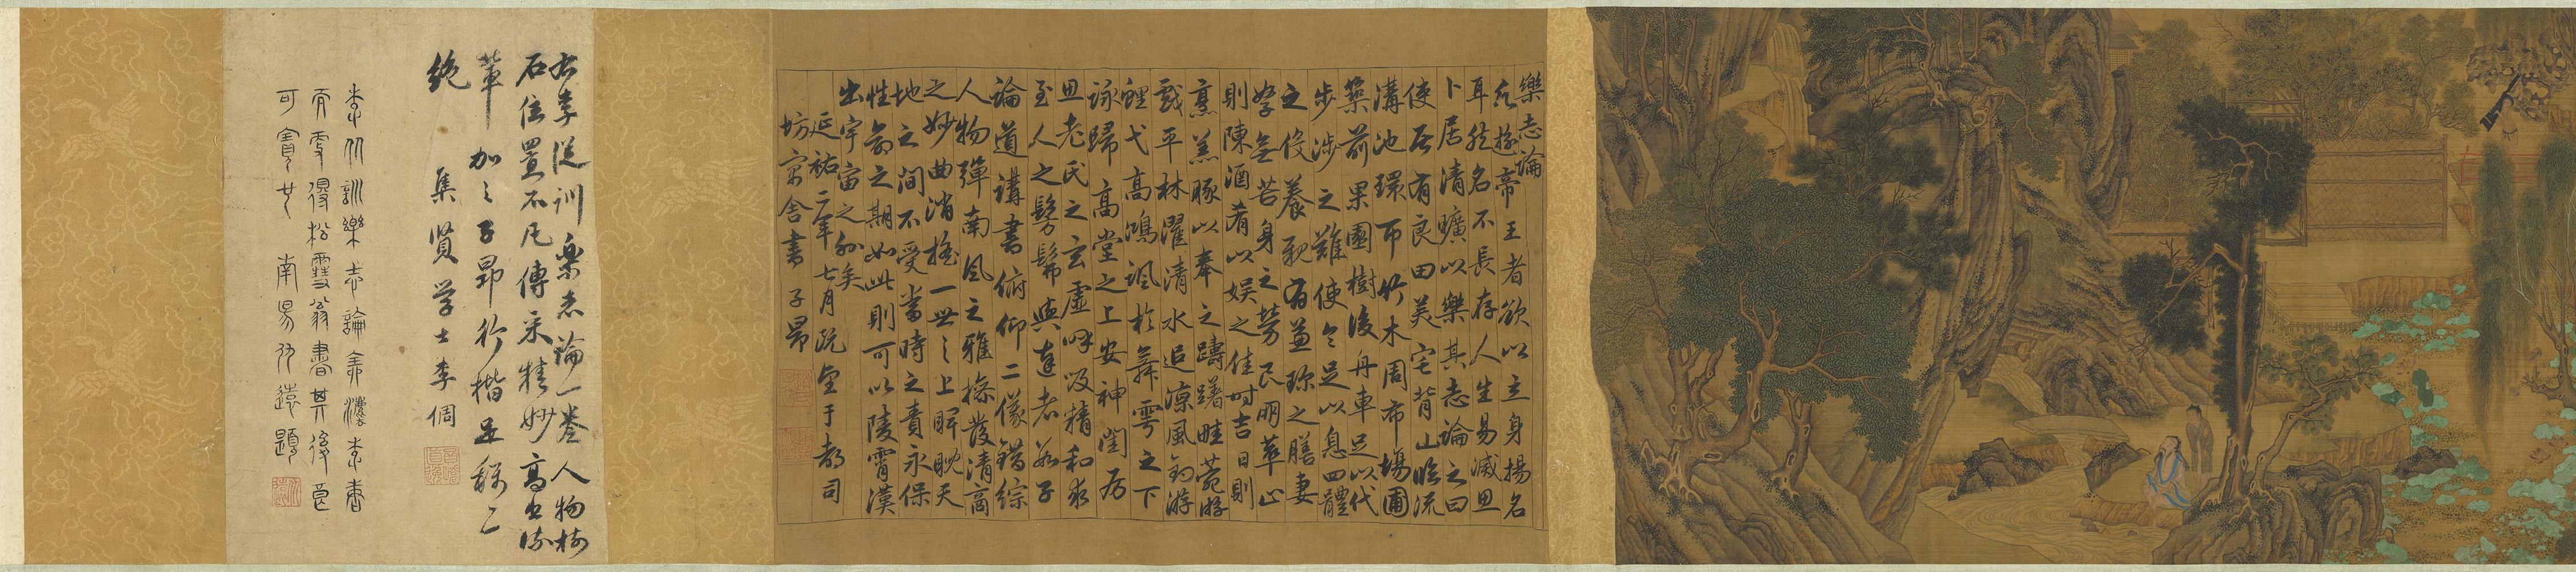 樂志論
凡遊帝王者欲以立身揚名
耳然名不長存人生易滅思
卜居清曠以樂其志論之曰
使居有良田美宅背山臨流
溝池環帀竹木周布場圃
築前果園樹後舟車足以代
步涉之難使令足以息四體
之役養親有兼珍之膳妻
孥無苦身之勞良朋萃止
則陳酒肴以娛之佳時吉日則
烹羔豚以奉之躊躇畦苑游
戲平林濯清水追涼風釣游
鯉弋高鴻諷於舞雩之下
詠歸高堂之上安神閨房
思老氏之玄虛呼吸精和求
至人之髣髴與達者數子
論道講書俯仰二儀錯綜
人物彈南風之雅操發清商
之妙曲消搖一世之上睥睨天
地之間不受當時之責永保
性命之期如此則可以陵霄漢
出宇宙之外矣
延祐二年七月既望于都司
坊寓舍書 子昂
右李從訓樂志論一卷人物樹
石位置不凡傅采精妙高出流
輩加之子昂行楷足稱二
絕 集賢學士李倜
李從訓樂志論
得松雪翁書其後良
可寶也 南昜仇遠題